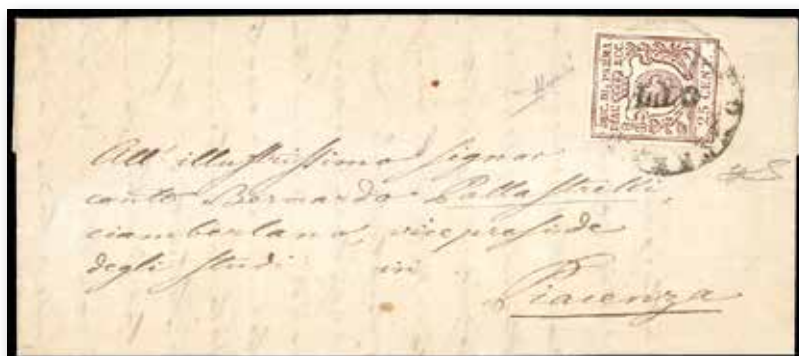 DUC. DI PARMA
PIAC. ECC.
25 CENT
LUG
All' illustrissimo signor
conte Bernardo Pallastrelli,
ciamberlano, vicepreside
degli studi in
Piacenza